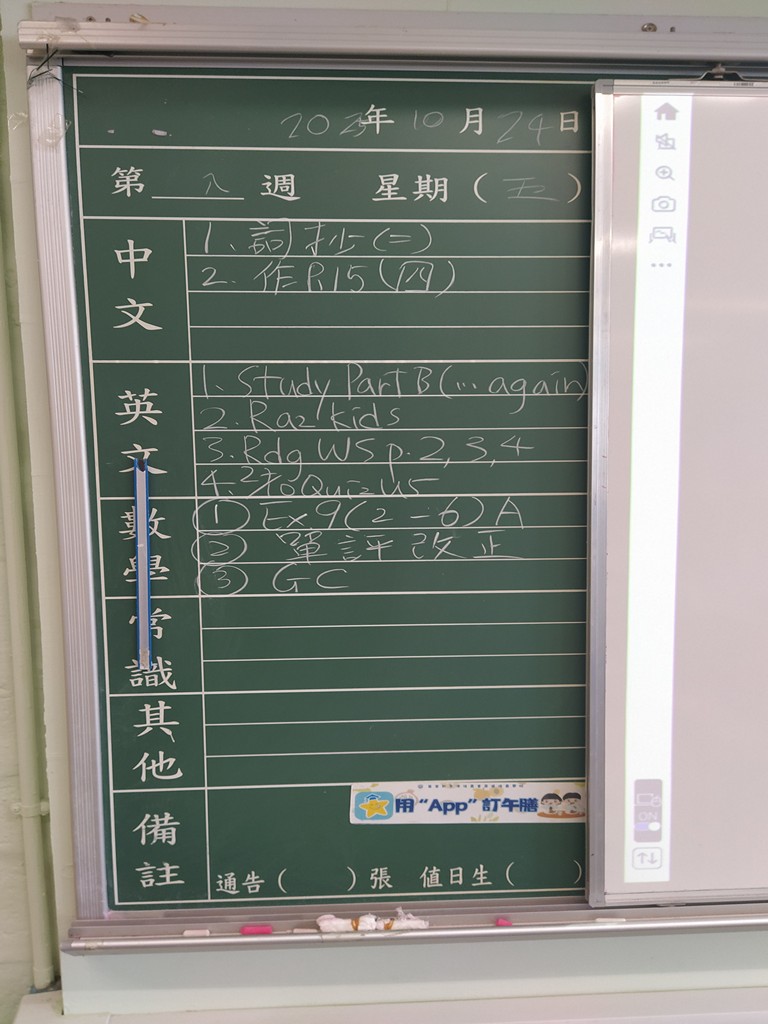 2025年10月24日
第 八 週 星期（五）
中文
1. 詞抄(二)
2. 作R15(四)
英文
1. Study Part B (... again)
2. Raz kids
3. Rdg WS p. 2, 3, 4
4. Quiz U5
數學
① Ex 9 (2-6) A
② 單評改正
③ GC
常識
其他
備註
用“App”訂午膳
通告（ ）張 值日生（ ）
ON